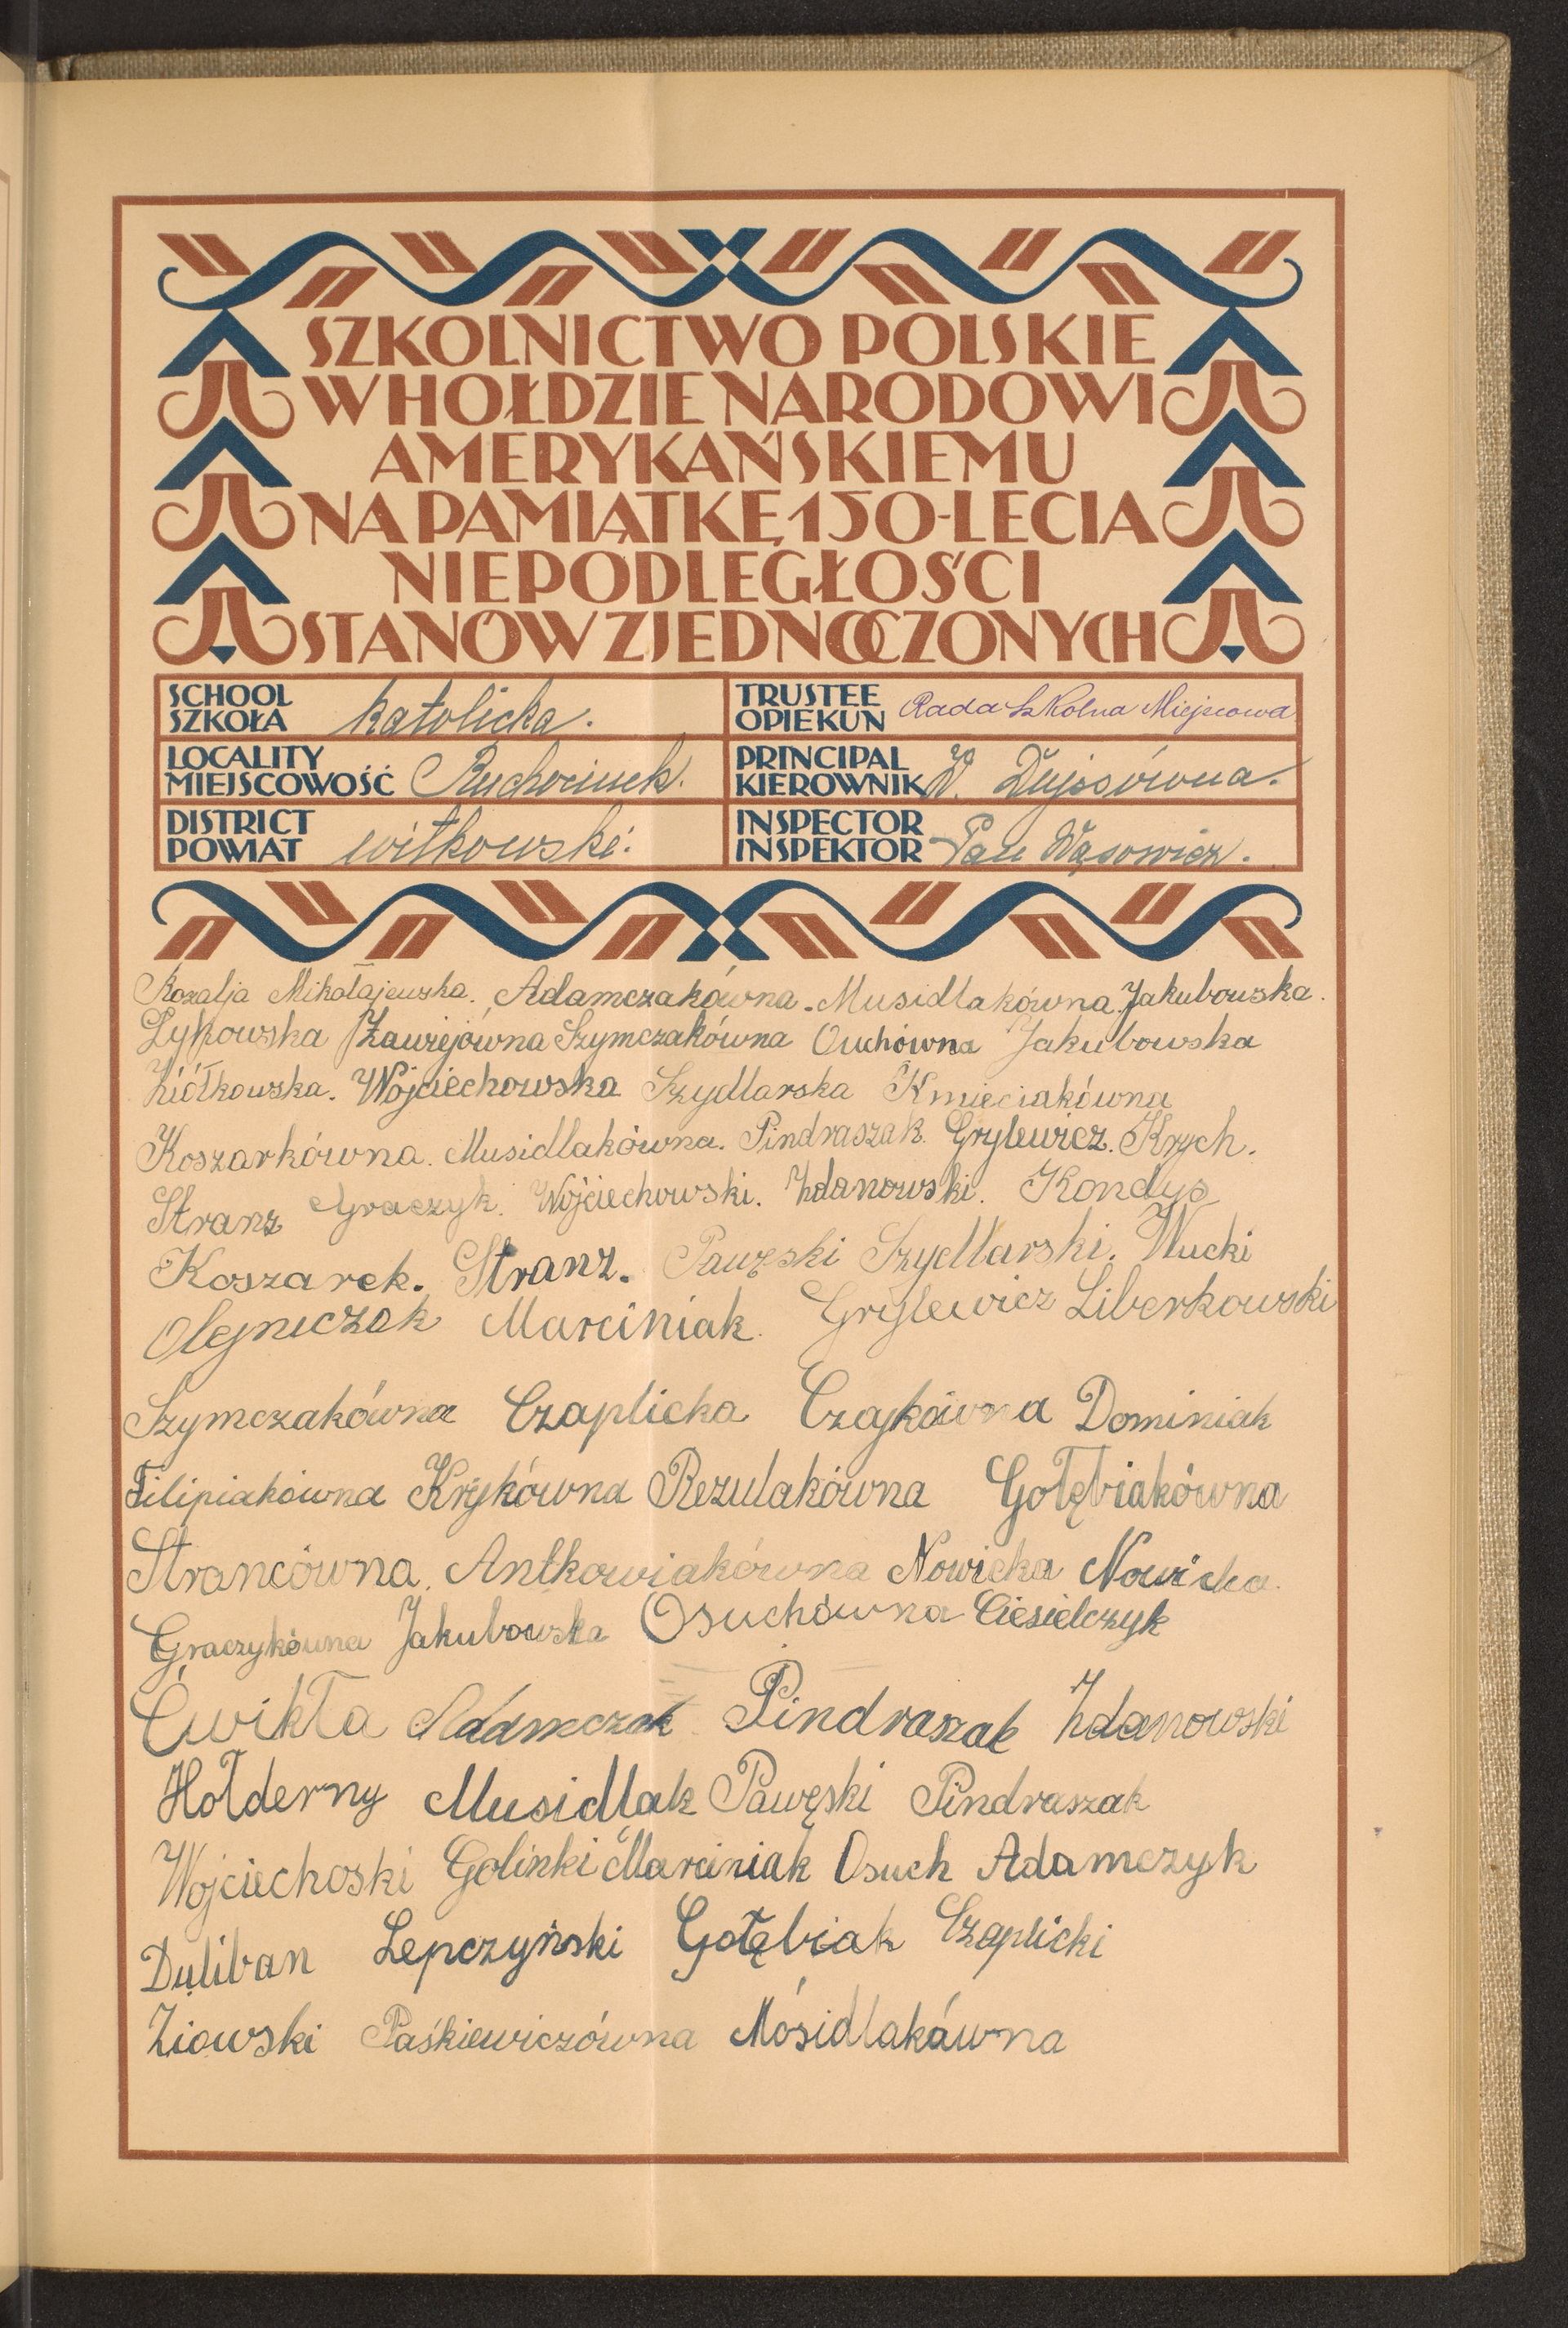 SZKOLNICTWO POLSKIE
W HOŁDZIE NARODOWI
AMERYKAŃSKIEMU
NA PAMIĄTKĘ 150-LECIA
NIEPODLEGŁOŚCI
STANÓW ZJEDNOCZONYCH
SCHOOL SZKOŁA katolicka. TRUSTEE OPIEKUN Rada Szkolna Miejscowa
LOCALITY MIEJSCOWOŚĆ Ruchocinek. PRINCIPAL KIEROWNIK W. Dujsówna.
DISTRICT POWIAT witkowski. INSPECTOR INSPEKTOR Pan Wąsowicz.
Rozalja Mikołajewska. Adamczakówna. Musidlakówna. Jakubowska.
Zawiejówna Szymczakówna Ouchówna Jakubowska
Ziółkowska. Wojciechowska Szydlarska Kmieciakówna
Koszarkówna. Musidlakówna. Pindraszak. Grylewicz. Krych.
Stranz Graczyk. Wojciechowski. Zdanowski. Kondys
Koszarek. Stranz. Pawęski Szydlarski. Wucki
Olejniczak Marciniak. Grylewicz Liberkowski
Szymczakówna Czaplicka Czajkówna Dominiak
Filipiakówna Krykówna Rezulakówna Gołębiakówna
Strancówna. Antkowiakówna Nowicka Nowicka.
Graczykówna Jakubowska Osuchówna Ciesielczyk
Ćwikła Adamczak Pindraszak Zdanowski
Hołderny Musidlak Pawęski Pindraszak
Wojciechoski Golinki Marciniak Osuch Adamczyk
Duliban Lepczyński Gołębiak Czaplicki
Ziowski Paśkiewiczówna Mósidlakówna